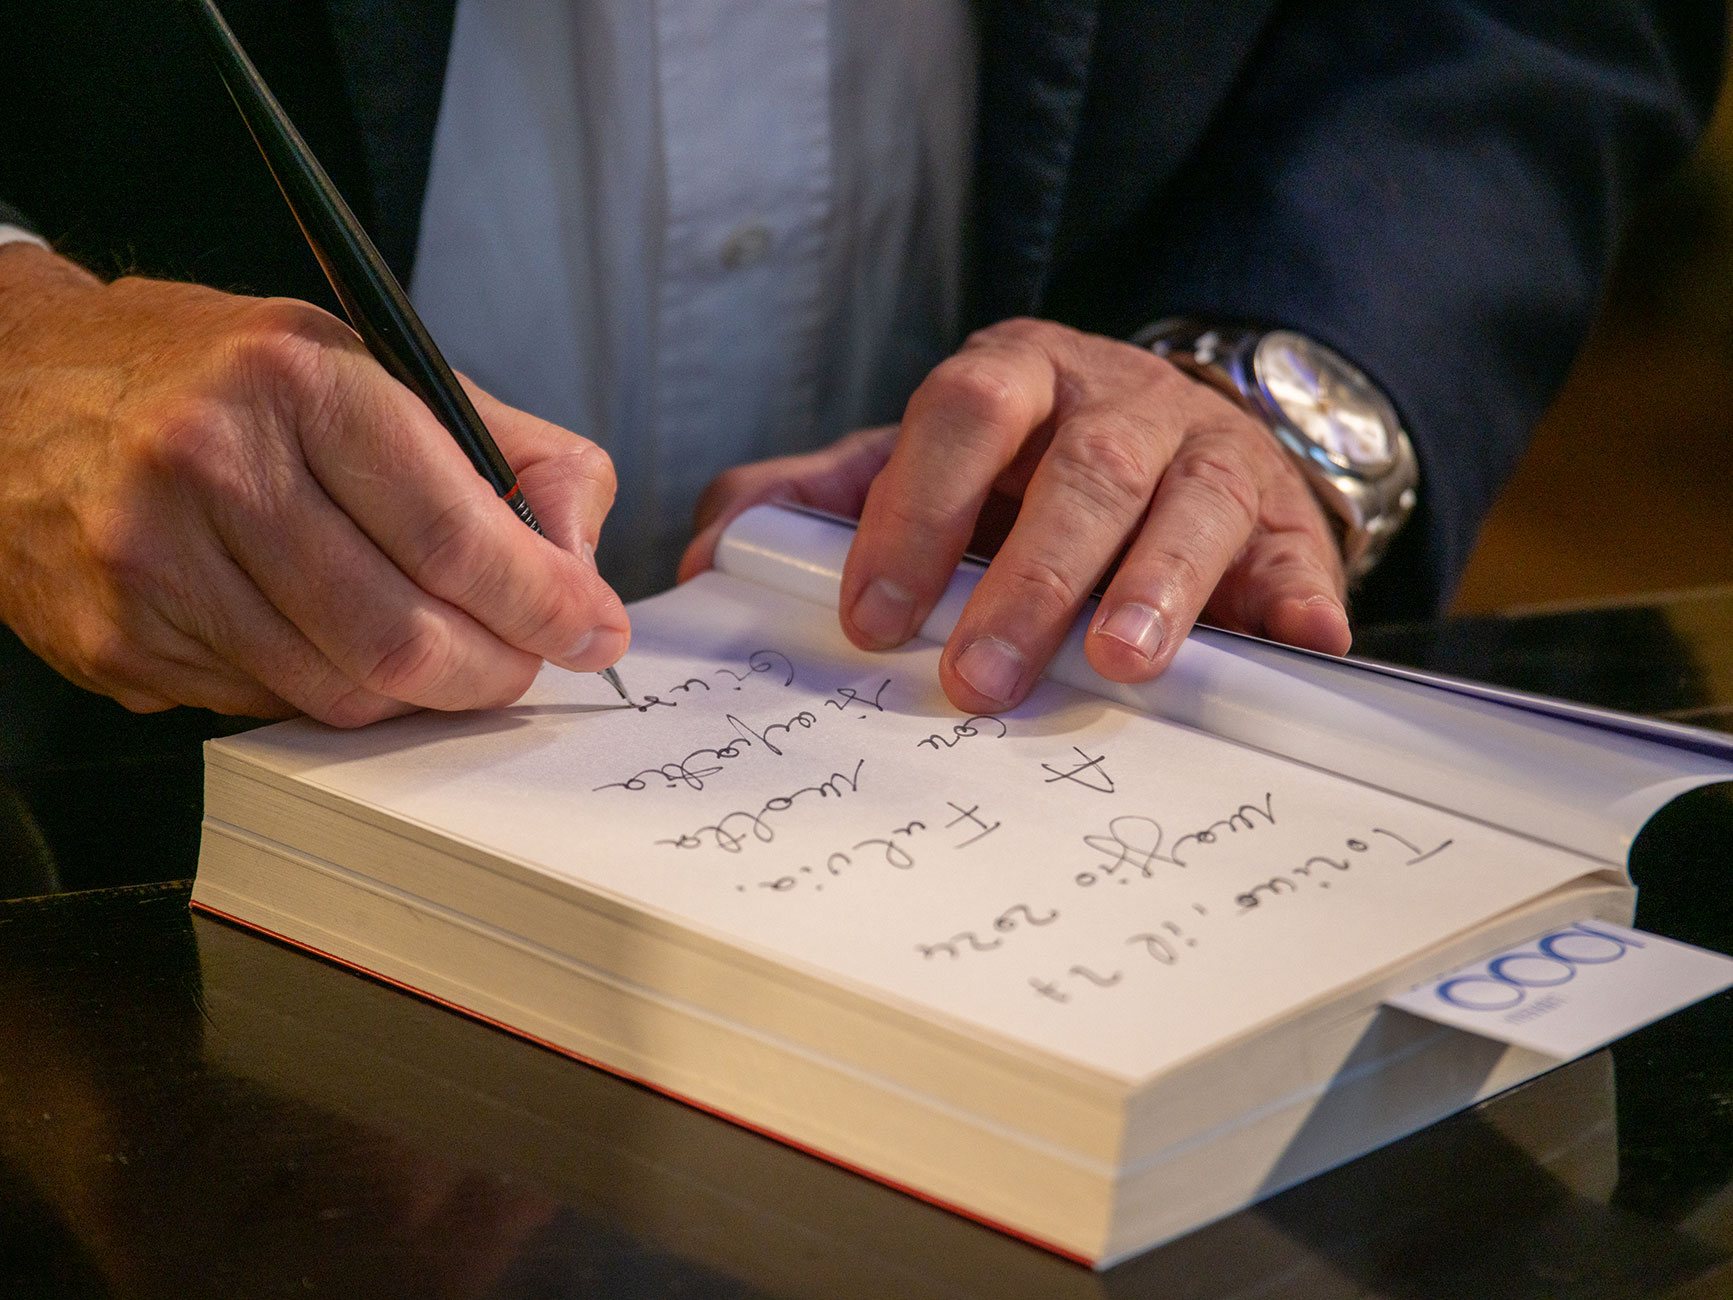 Torino, il 27
maggio 2024
A Fulvia.
con molta
simpatia
1000